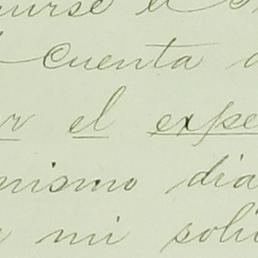 urse el
Cuenta
r el expe
nismo dia
mi soli